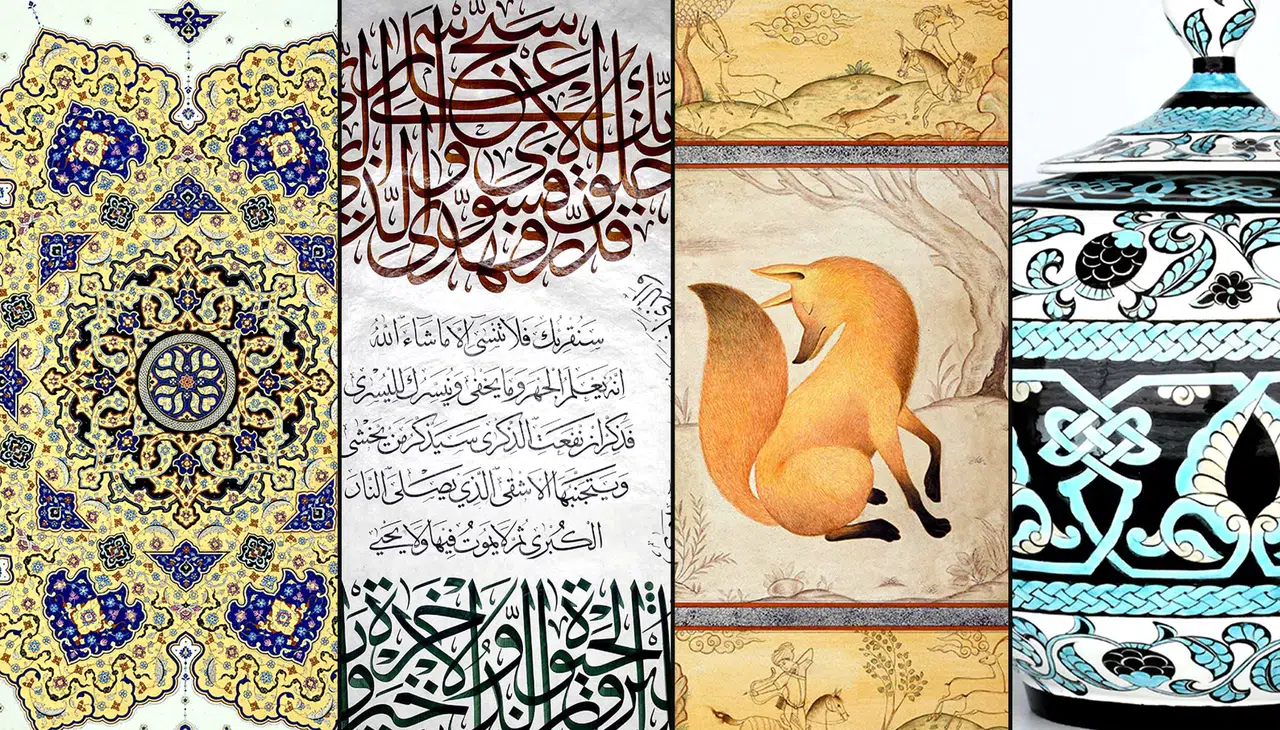 سبح اسم ربك الأعلى الذي
خلق فسوى والذي
قدر فهدى
سنقرئك فلا تنسى الا ما شاء الله
انه يعلم الجهر وما يخفى ونيسرك لليسرى
فذكر ان نفعت الذكرى سيذكر من يخشى
ويتجنبها الاشقى الذي يصلى النار
الكبرى ثم لا يموت فيها ولا يحيى
الحيوة الد
والاخرة خير و